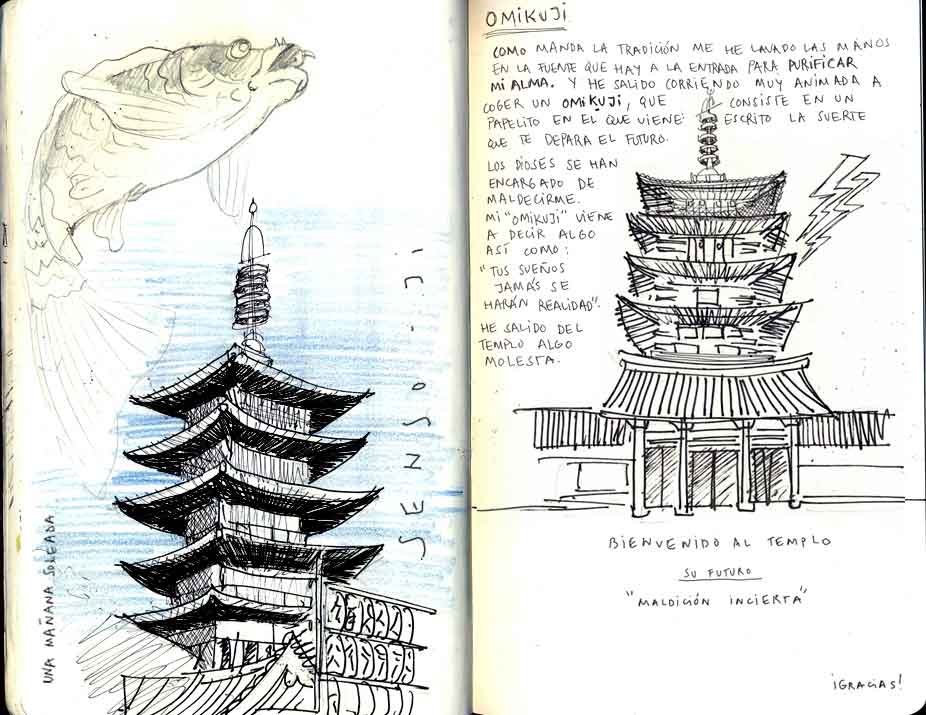 UNA MAÑANA SOLEADA
SENSO-JI
OMIKUJI
COMO MANDA LA TRADICIÓN ME HE LAVADO LAS MANOS
EN LA FUENTE QUE HAY A LA ENTRADA PARA PURIFICAR
MI ALMA. Y HE SALIDO CORRIENDO MUY ANIMADA A
COGER UN OMIKUJI, QUE CONSISTE EN UN
PAPELITO EN EL QUE VIENE ESCRITO LA SUERTE
QUE TE DEPARA EL FUTURO.
LOS DIOSES SE HAN
ENCARGADO DE
MALDECIRME.
MI "OMIKUJI" VIENE
A DECIR ALGO
ASÍ COMO:
"TUS SUEÑOS
JAMÁS SE
HARÁN REALIDAD".
HE SALIDO DEL
TEMPLO ALGO
MOLESTA.
BIENVENIDO AL TEMPLO
SU FUTURO
"MALDICIÓN INCIERTA"
¡GRACIAS!